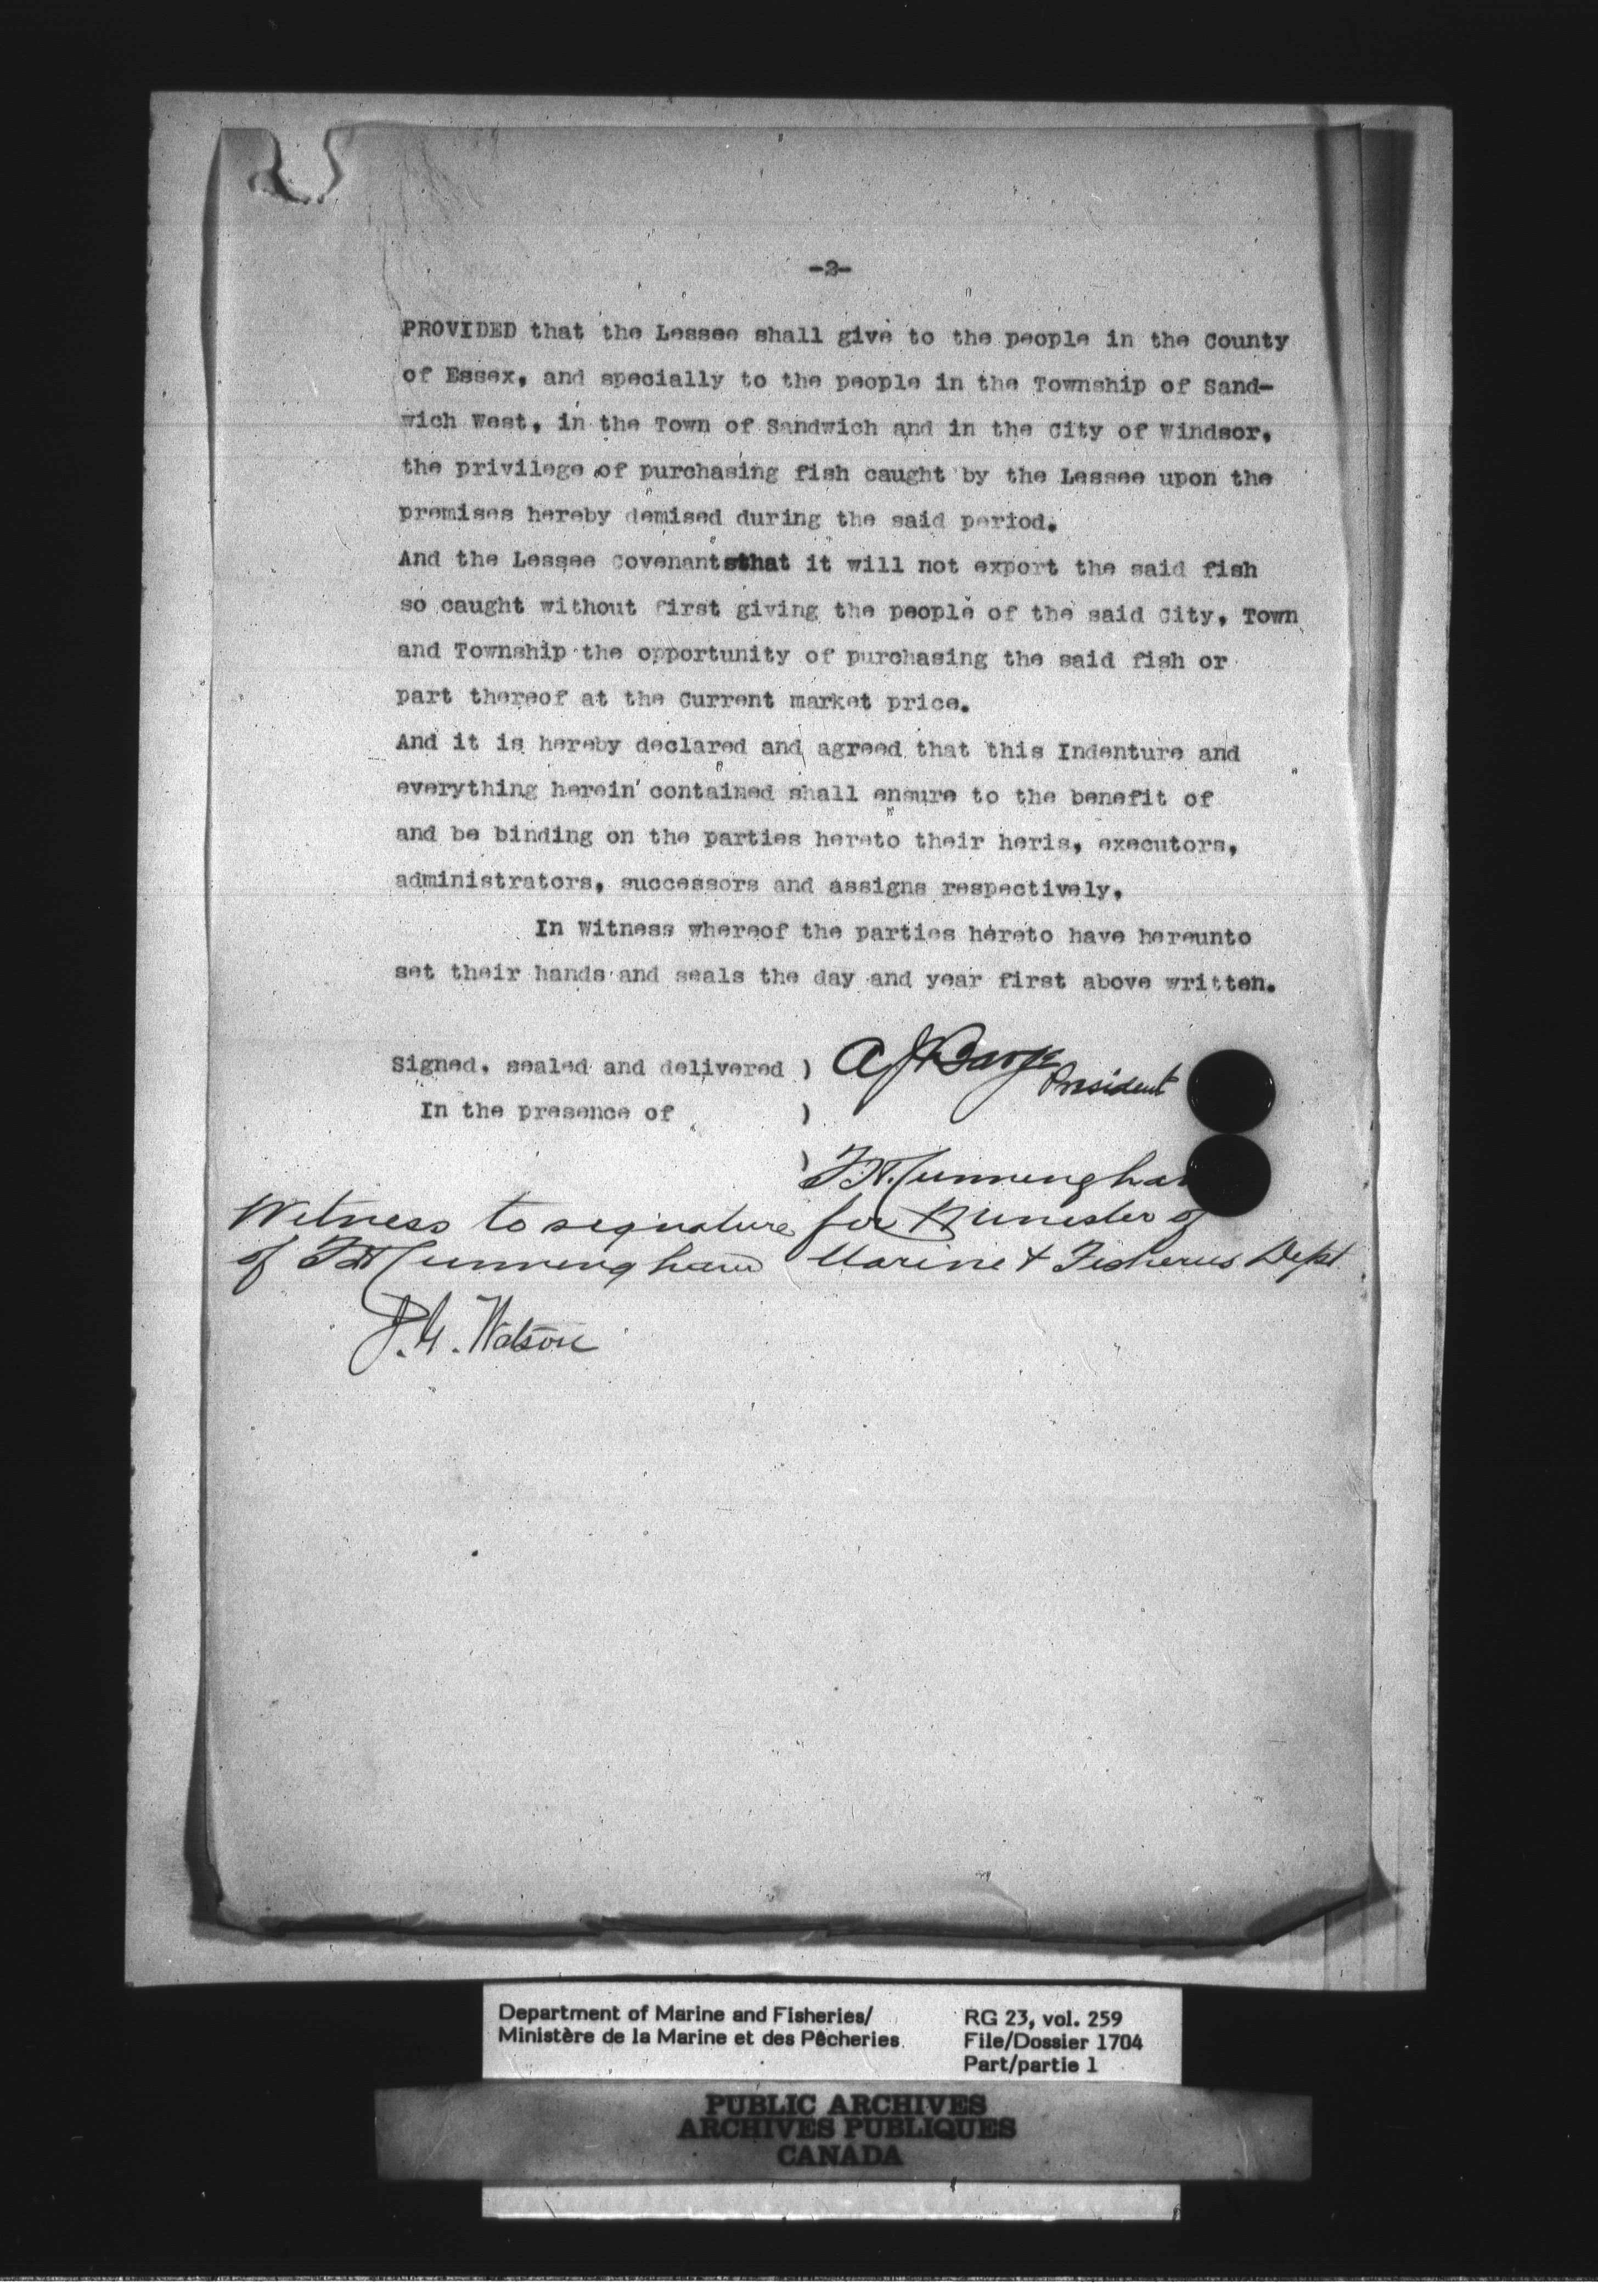 -2-
PROVIDED that the Lessee shall give to the people in the County
of Essex, and specially to the people in the Township of Sand-
wich West, in the Town of Sandwich and in the City of Windsor,
the privilege of purchasing fish caught by the Lessee upon the
premises hereby demised during the said period.
And the Lessee covenantsthat it will not export the said fish
so caught without first giving the people of the said City, Town
and Township the opportunity of purchasing the said fish or
part thereof at the current market price.
And it is hereby declared and agreed that this Indenture and
everything herein contained shall ensure to the benefit of
and be binding on the parties hereto their heris, executors,
administrators, successors and assigns respectively.
In Witness whereof the parties hereto have hereunto
set their hands and seals the day and year first above written.
Signed, sealed and delivered )
In the presence of )
)
A J
President
F. H. Cunningham
for Minister of
Marine & Fisheries Dept.
Witness to signature
of F H Cunningham
J. G. Watson
Department of Marine and Fisheries/
Ministère de la Marine et des Pêcheries
RG 23, vol. 259
File/Dossier 1704
Part/partie 1
PUBLIC ARCHIVES
ARCHIVES PUBLIQUES
CANADA